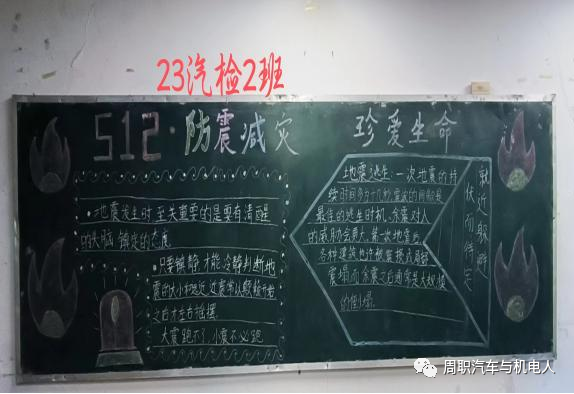 23汽检2班
512·防震减灾 珍爱生命
·地震发生时至关重要的是要有清醒
的大脑,镇定的态度
·只有镇静,才能冷静判断地
震的大小和远近
之后才左右摇摆.
大震跑不了,小震不必跑
地震逃生:一次地震的持
续时间多为十几秒,震波的间隙是
最佳的逃生时机.余震对人
的威胁会更大.第一次地震后
各种建筑也许被震损或局部
震塌而余震之后通常是大规模
的倒塌.
就近躲避
伏而待定
周职汽车与机电人